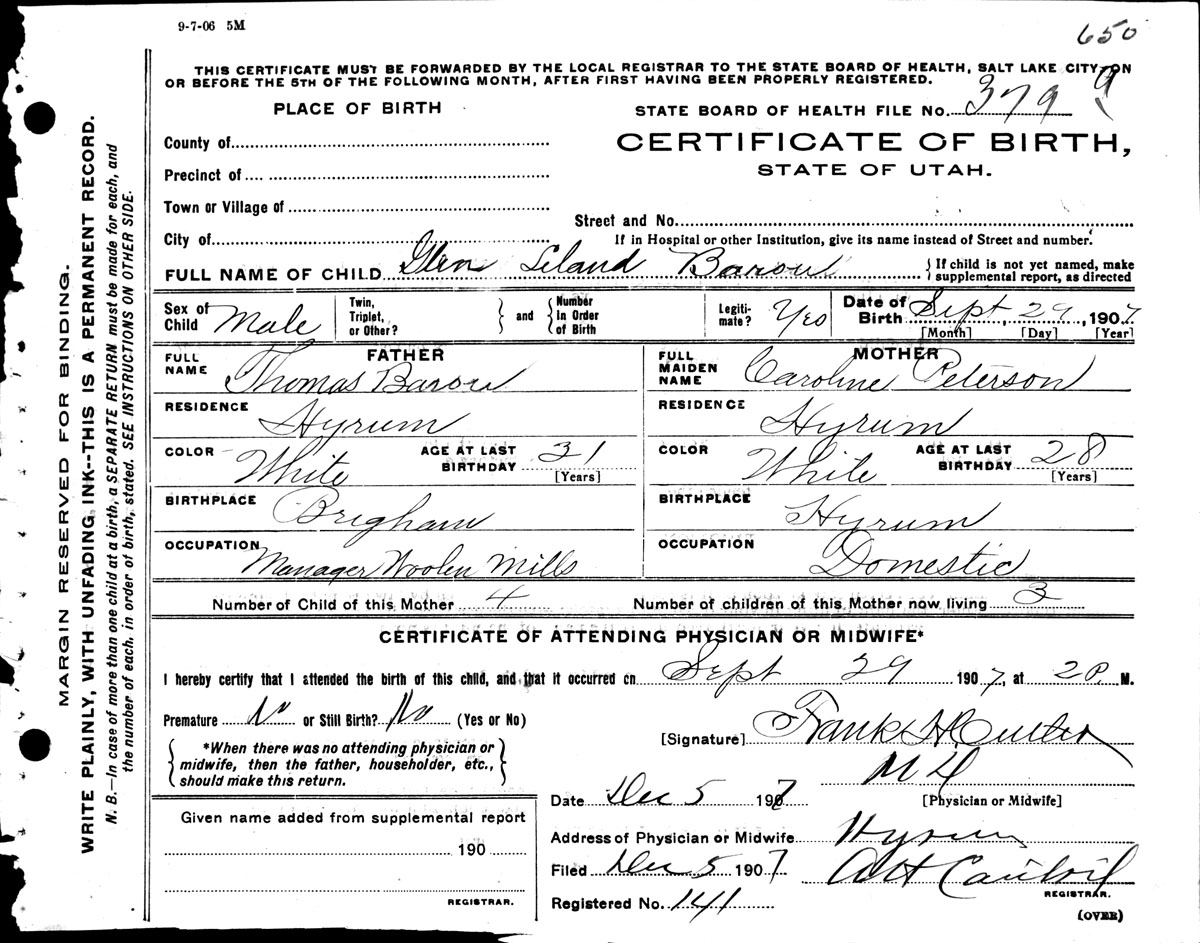 9-7-06 5M
650
THIS CERTIFICATE MUST BE FORWARDED BY THE LOCAL REGISTRAR TO THE STATE BOARD OF HEALTH, SALT LAKE CITY, ON
OR BEFORE THE 5TH OF THE FOLLOWING MONTH, AFTER FIRST HAVING BEEN PROPERLY REGISTERED.
PLACE OF BIRTH
STATE BOARD OF HEALTH FILE No. 379 9
County of
CERTIFICATE OF BIRTH,
Precinct of
STATE OF UTAH.
Town or Village of
Street and No.
City of
If in Hospital or other Institution, give its name instead of Street and number.
FULL NAME OF CHILD Glen Leland Barow { If child is not yet named, make
supplemental report, as directed
Sex of Child Male Twin, Triplet, or Other? } and { Number In Order of Birth Legiti-mate? Yes Date of Birth Sept, 29, 1907
[Month] [Day] [Year]
FATHER
FULL NAME Thomas Barow
RESIDENCE Hyrum
COLOR White AGE AT LAST BIRTHDAY 31
[Years]
BIRTHPLACE Brigham
OCCUPATION Manager Woolen Mills
MOTHER
FULL MAIDEN NAME Caroline Peterson
RESIDENCE Hyrum
COLOR White AGE AT LAST BIRTHDAY 28
[Years]
BIRTHPLACE Hyrum
OCCUPATION Domestic
Number of Child of this Mother 4 Number of children of this Mother now living 3
CERTIFICATE OF ATTENDING PHYSICIAN OR MIDWIFE*
I hereby certify that I attended the birth of this child, and that it occurred on Sept 29 1907, at 2 P. M.
Premature No or Still Birth? No (Yes or No)
{ *When there was no attending physician or
midwife, then the father, householder, etc.,
should make this return. }
[Signature] Frank H. Cutler
M D
[Physician or Midwife]
Date Dec 5 1907
Address of Physician or Midwife Hyrum
Filed Dec 5 1907
REGISTRAR.
Registered No. 141
(OVER)
Given name added from supplemental report
190
REGISTRAR.
MARGIN RESERVED FOR BINDING.
WRITE PLAINLY, WITH UNFADING INK--THIS IS A PERMANENT RECORD.
N. B.—In case of more than one child at a birth, a SEPARATE RETURN must be made for each, and
the number of each, in order of birth, stated. SEE INSTRUCTIONS ON OTHER SIDE.